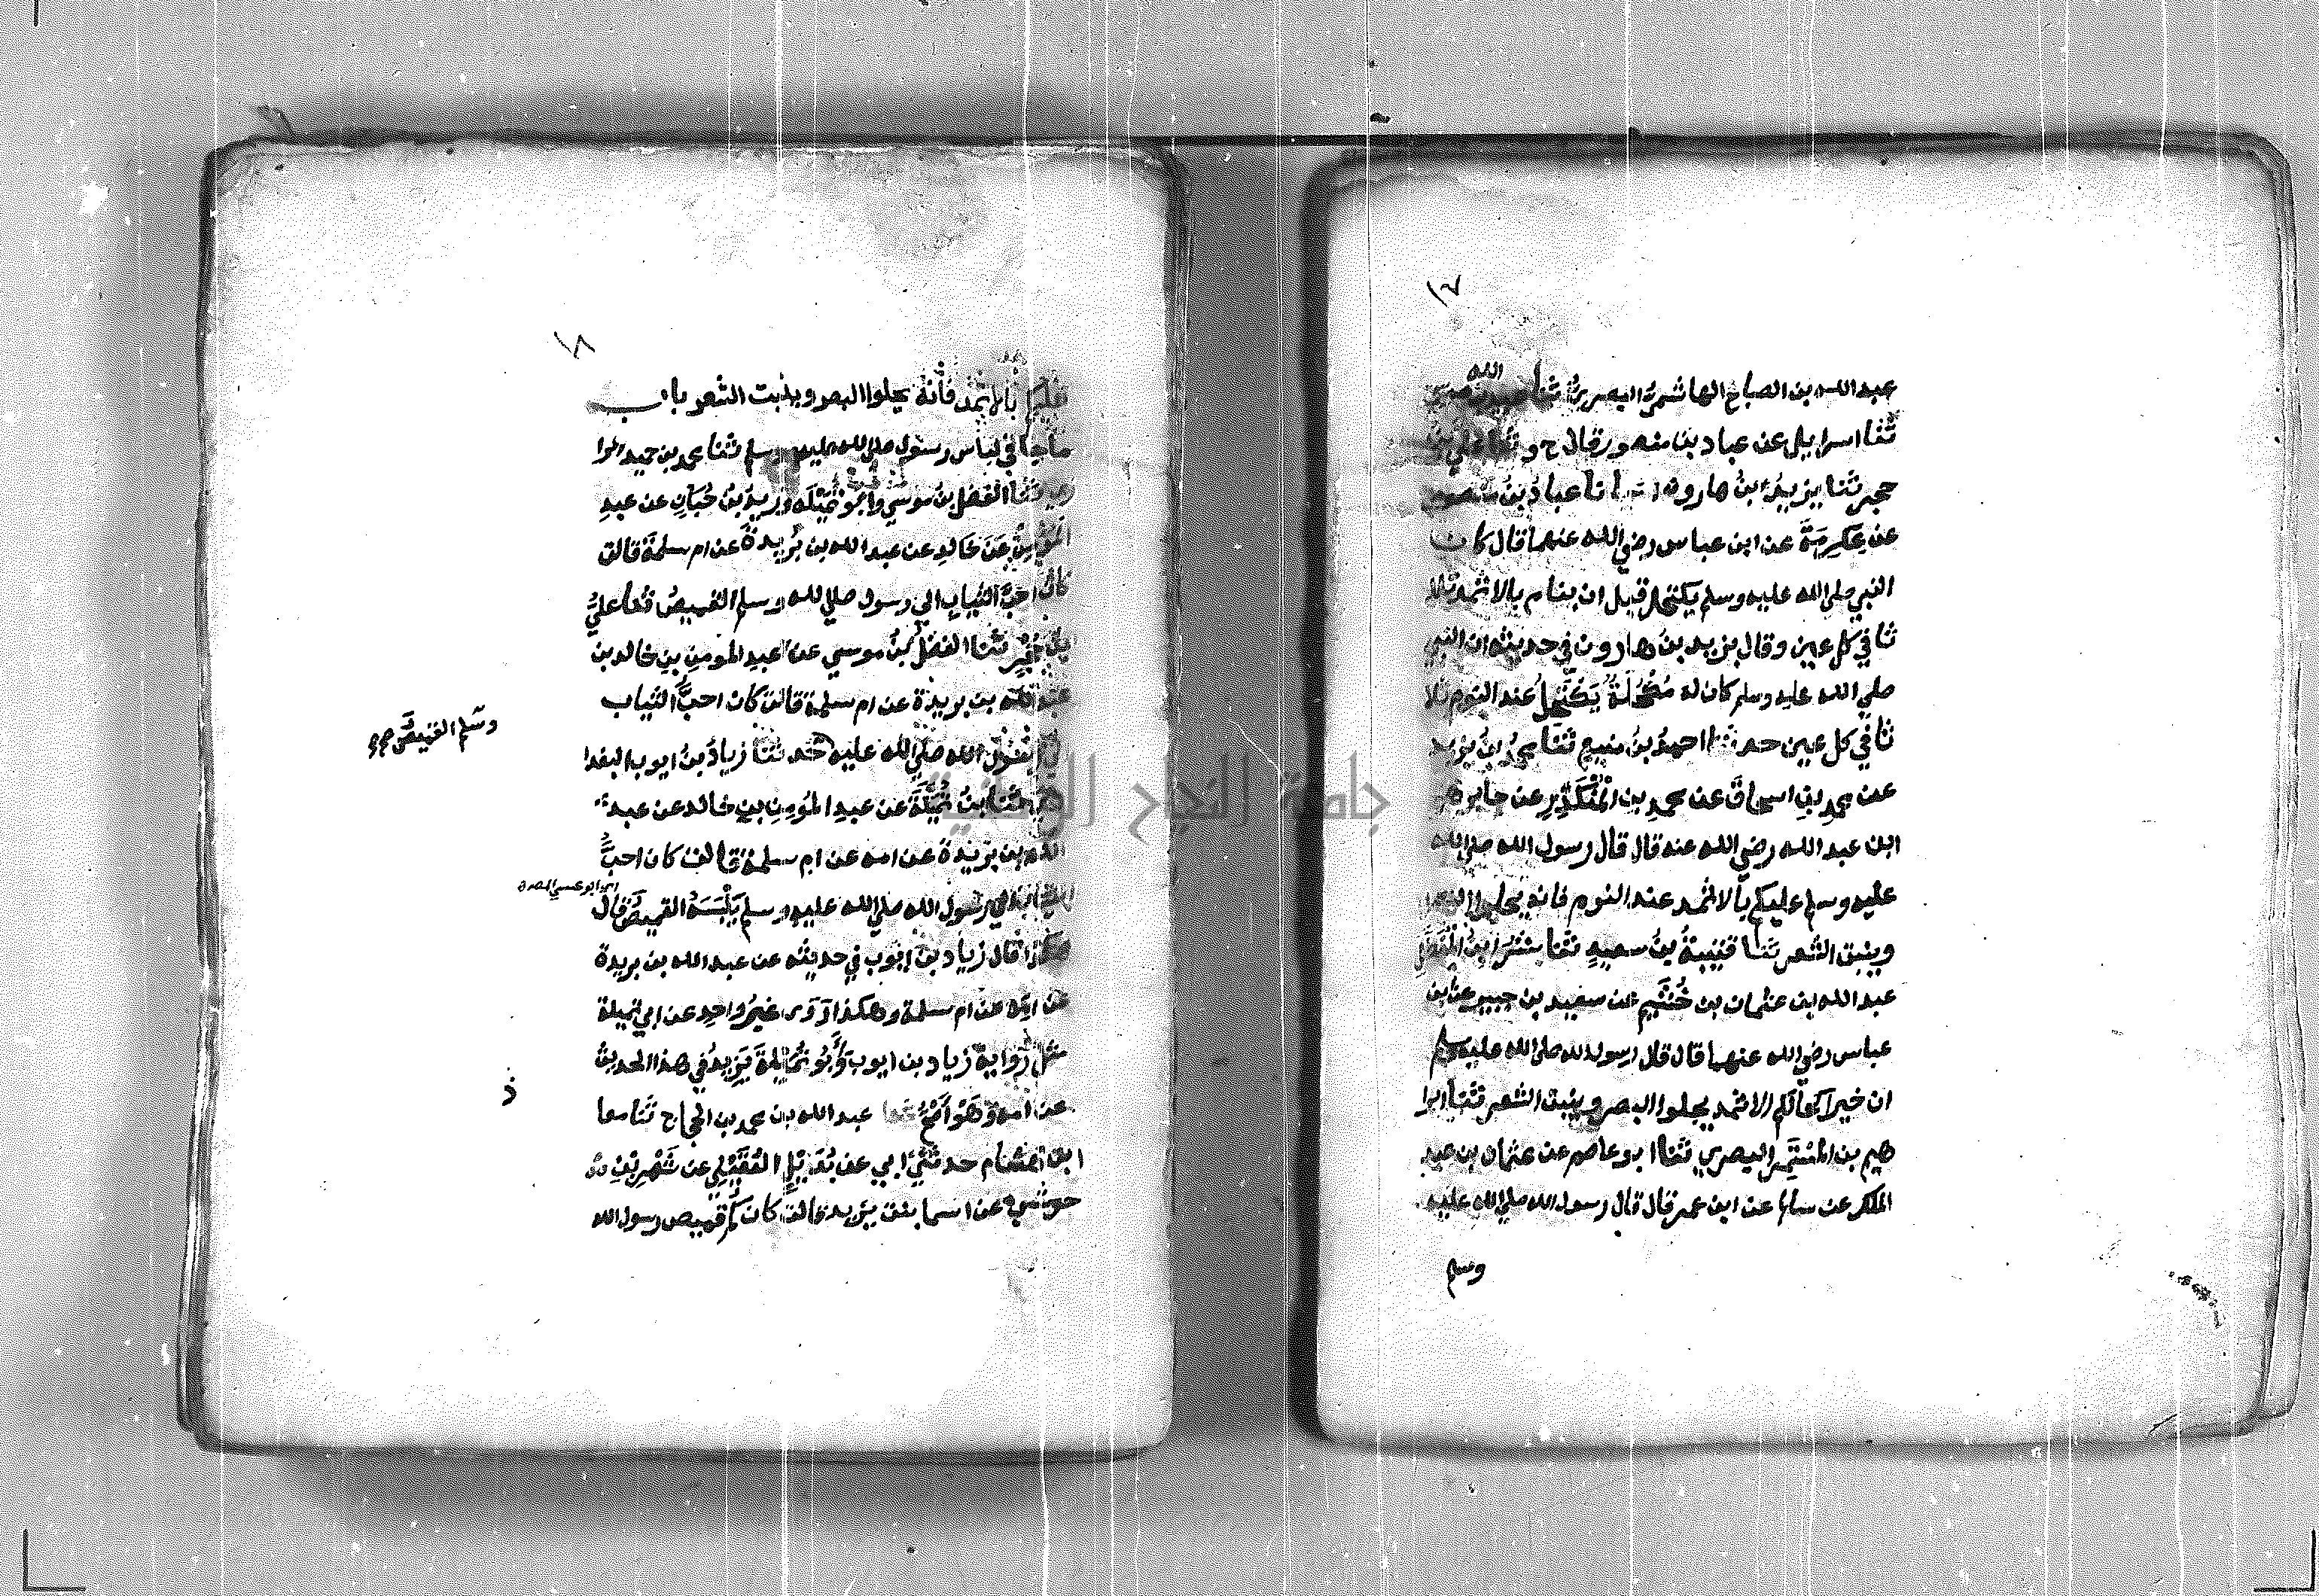 ١٧
عبد الله بن الصباح الهاشمي البصري ثنا عبيد الله بن موسى
ثنا اسرايل عن عباد بن منصور قال ح و ثنا علي بن
حجر ثنا يزيد بن هارون انا عباد بن منصور
عن عِكرِمَةَ عن ابن عباس رضي الله عنهما قال كان
النبي صلي الله عليه وسلم يكتحل قبل ان ينام بالاثمد ثلا
ثا في كل عين وقال يزيد بن هارون في حديثه ان النبي
صلي الله عليه وسلم كان له مُكْحُلَةُ يَكْتَحِلُ عند النوم ثلا
ثا في كل عين حدثنا احمدُ بنُ منيع ثنا محمدُ بنُ يزيد
عن محمدِ بنِ اسحاقَ عن محمدِ بن المُنْكَدِرِ عن جابر هو
ابن عبد الله رضي الله عنه قال قال رسول الله صلي الله
عليه وسلم عليكم بالاثمد عند النوم فانه يجلوا البصر
وينبت الشعر ثنا قتيبةُ بنُ سعيدٍ ثنا بشرُ ابنُ المُفَضَّلِ
عبد الله بن عثمان بن خُثَيمٍ عن سعيد بن جبير عن بن
عباس رضي الله عنهما قال قال رسول الله صلي الله عليه وسلم
ان خير اكحالكم الاثمد يجلوا البصر وينبت الشعر ثنا ابرا
هيم بن المستمر البصري ثنا ابو عاصم عن عثمان بن عبد
الملك عن سالم عن ابن عمر قال قال رسول الله صلي الله عليه
وسلم
١٨
عليكم بالاثمد فانه يجلوا البصر وينبت الشعر باب
ما جا في لباس رسول صلي الله عليه وسلم ثنا محمد بن حميد الرا
زي ثنا الفضل بن موسي وابو تُمَيْلَه وزيدُ بنُ حُبَابٍ عن عبدِ
المؤمنِ بن خالد عن عبد الله بن بُريدة عن ام سلمة قالت
كان احبَّ الثيابِ الي رسول صلي لله وسلم القميصُ ثنا عليُّ
بنُ حُجْرٍ ثنا الفضلُ بنُ موسي عن عبدِ المومنِ بنِ خالد بن
عبد الله بن بريدة عن ام سلمة قالت كان احبَّ الثياب
الي رسول الله صلي الله عليه حد ثنا زيادُ بنُ ايوب البغدا
وسَلم القميصَ
دي ثنا بنُ تُمَيْلَةَ عن عبدِ المُومِنِ بنِ خالد عن عبد
الله بن بريدة عن امه عن ام سلمة قالت كان احبُّ
الثياب الي رسول الله صلي الله عليه وسلم يَلْبَسَهُ القميصَُ قال
اي ابو عيسي المصـ
هكذا قال زياد بن ايوب في حديثه عن عبد الله بن بريدة
عن امه عن ام سلمة وهكذا رَوَى غيرُ واحدٍ عن ابي تميلة
مثل رواية زياد بن ايوب وَأَبُو تُمَيْلَةَ يَزِيدُ في هذا الحديث
عن امه وَهُوَ أَصَحُّ ثنا عبد الله بن محمد بن الحجاج ثنا معا
ذ
ابن هشام حدثني ابي عن بُدَيْلٍ العُقَيْلِي عن شَهْرِ بْنِ
حوشبٍ عن اسما بنت يزيد قالت كان كُم قميص رسول الله
جامعة النجاح الوطنية